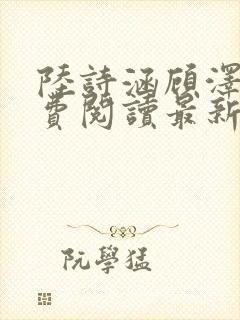 陸詩涵顧澤
費閱讀最新
阮學猛